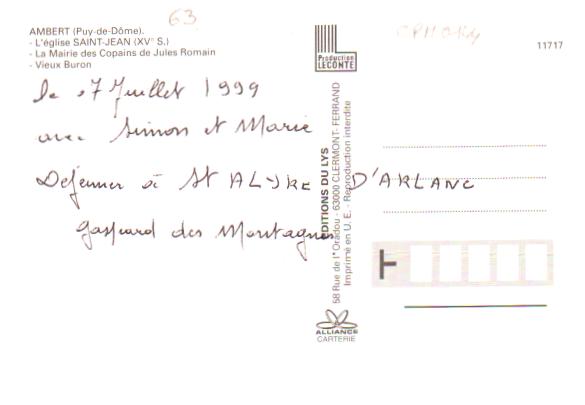 63
AMBERT (Puy-de-Dôme).
- L'église SAINT-JEAN (XV° S.)
- La Mairie des Copains de Jules Romain
- Vieux Buron
Production
LECONTE
11717
le 17 Juillet 1999
avec Simon et Marie
Dejeuner à St ALYRE D'ARLANC
Gaspard des Montagnes
EDITIONS DU LYS
58 Rue de l'Oradou - 63000 CLERMONT-FERRAND
Imprimé en U. E. - Reproduction interdite
ALLIANCE
CARTERIE